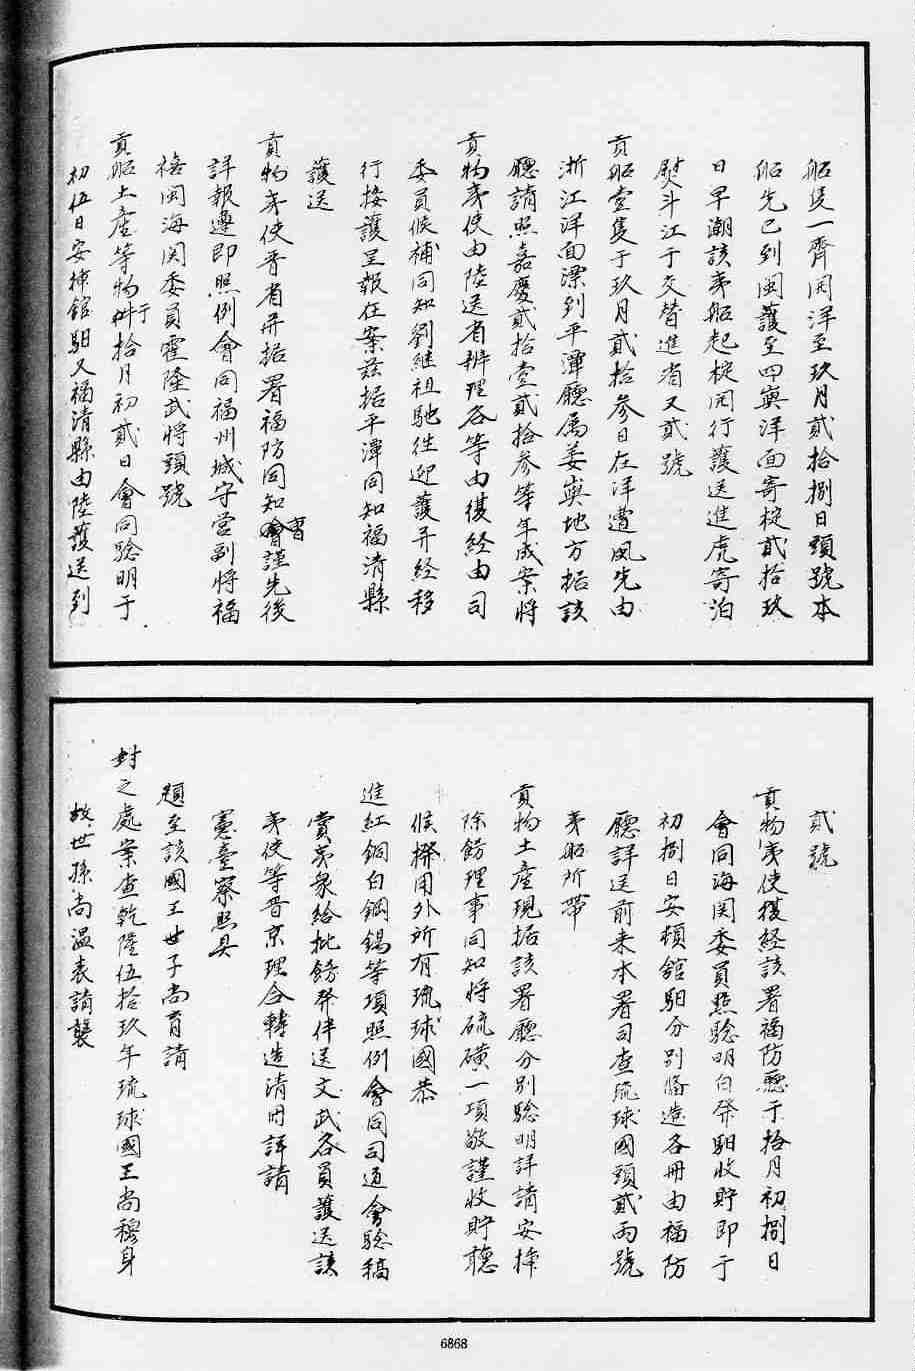 船隻一齊開洋至玖月貳拾捌日頭號本
船先已到閩護至四嶼洋面寄椗貳拾玖
日早潮該夷船起椗開行護送進虎寄泊
熨斗江于交替進省又貳號
貢船壹隻于玖月貳拾參日在洋遭風先由
浙江洋面漂到平潭廳屬姜嶼地方據該
廳請照嘉慶貳拾壹貳拾參等年成案將
貢物夷使由陸送省辦理各等由復經由司
委員候補同知劉繼祖馳往迎護并經移
行接護呈報在案茲據平潭同知福清縣
護送
貢物夷使晋省并據署福防同知曹謹先後
詳報遵即照例會同福州城守營副將福
禧閩海関委員霍隆武將頭號
貢船土產等物併行拾月初貳日會同驗明于
初伍日安揷館馹又福清縣由陸護送到
貳號
貢物夷使復經該署福防廳于拾月初捌日
會同海関委員照驗明白發馹收貯即于
初捌日安頓舘馹分别俻造各冊由福防
廳詳送前来本署司查琉球國頭貳両號
夷船所帶
貢物土產現據該署廳分别驗明詳請安揷
除飭理事同知將硫磺一項敬謹收貯聽
候撥用外所有琉球國恭
進紅銅白鋼錫等項照例會同司道會驗稿
賞夷衆給批飭發伴送文武各員護送該
夷使等晋京理合轉造清冊詳請
憲臺察照具
題至該國王世子尚育請
封之處案查乾隆伍拾玖年琉球國王尚穆身
故世孫尚温表請襲
6868